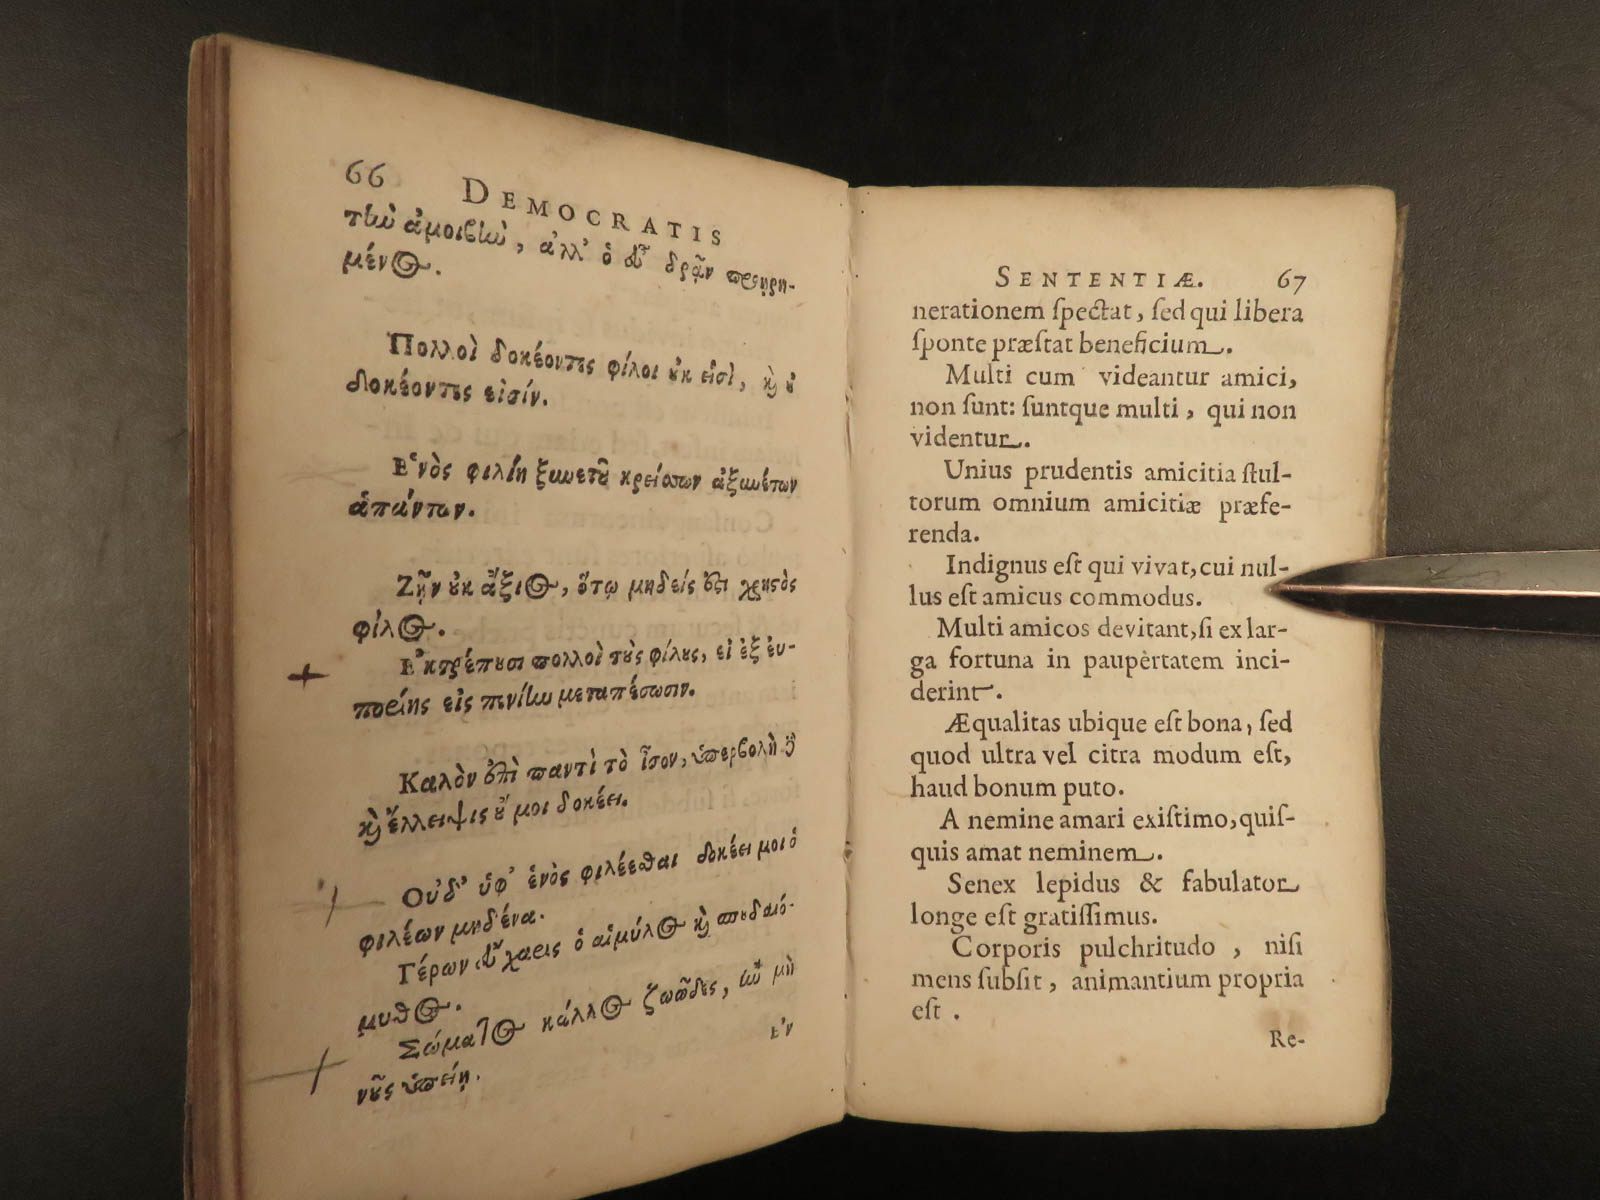 66 DEMOCRATIS
τὴν ἀμοιβὴν, ἀλλ' ὁ εὖ δρᾷν προῃρη-
μένος.
Πολλοὶ δοκέοντες φίλοι οὐκ εἰσὶ, καὶ οὐ
δοκέοντες εἰσίν.
Ἑνὸς φιλίη ξυνετοῦ κρείσσων ἀξυνέτων
ἁπάντων.
Ζῇν οὐκ ἄξιος, ὅτῳ μηδείς ἐστι χρηστὸς
φίλος.
Ἐκτρέπουσι πολλοὶ τοὺς φίλους, εἰ ἐξ εὐ-
πορίης εἰς πενίην μεταπέσωσιν.
Καλὸν ἐπὶ παντὶ τὸ ἶσον, ὑπερβολὴ δὲ
καὶ ἔλλειψις οὔ μοι δοκέει.
Οὐδ' ὑφ' ἑνὸς φιλέεσθαι δοκέει μοι ὁ
φιλέων μηδένα.
Γέρων εὔχαρις ὁ αἱμύλος καὶ σπουδαιό-
μυθος.
Σώματος κάλλος ζωῶδες, ἢν μὴ
νοῦς ὑπείη.
Ἐν
SENTENTIÆ. 67
nerationem ſpectat, ſed qui libera
ſponte præſtat beneficium.
Multi cum videantur amici,
non ſunt: ſuntque multi, qui non
videntur.
Unius prudentis amicitia ſtul-
torum omnium amicitiæ præfe-
renda.
Indignus eſt qui vivat, cui nul-
lus eſt amicus commodus.
Multi amicos devitant, ſi ex lar-
ga fortuna in paupèrtatem inci-
derint.
Æqualitas ubique eſt bona, ſed
quod ultra vel citra modum eſt,
haud bonum puto.
A nemine amari exiſtimo, quiſ-
quis amat neminem.
Senex lepidus & fabulator
longe eſt gratiſſimus.
Corporis pulchritudo, niſi
mens ſubſit, animantium propria
eſt.
Re-